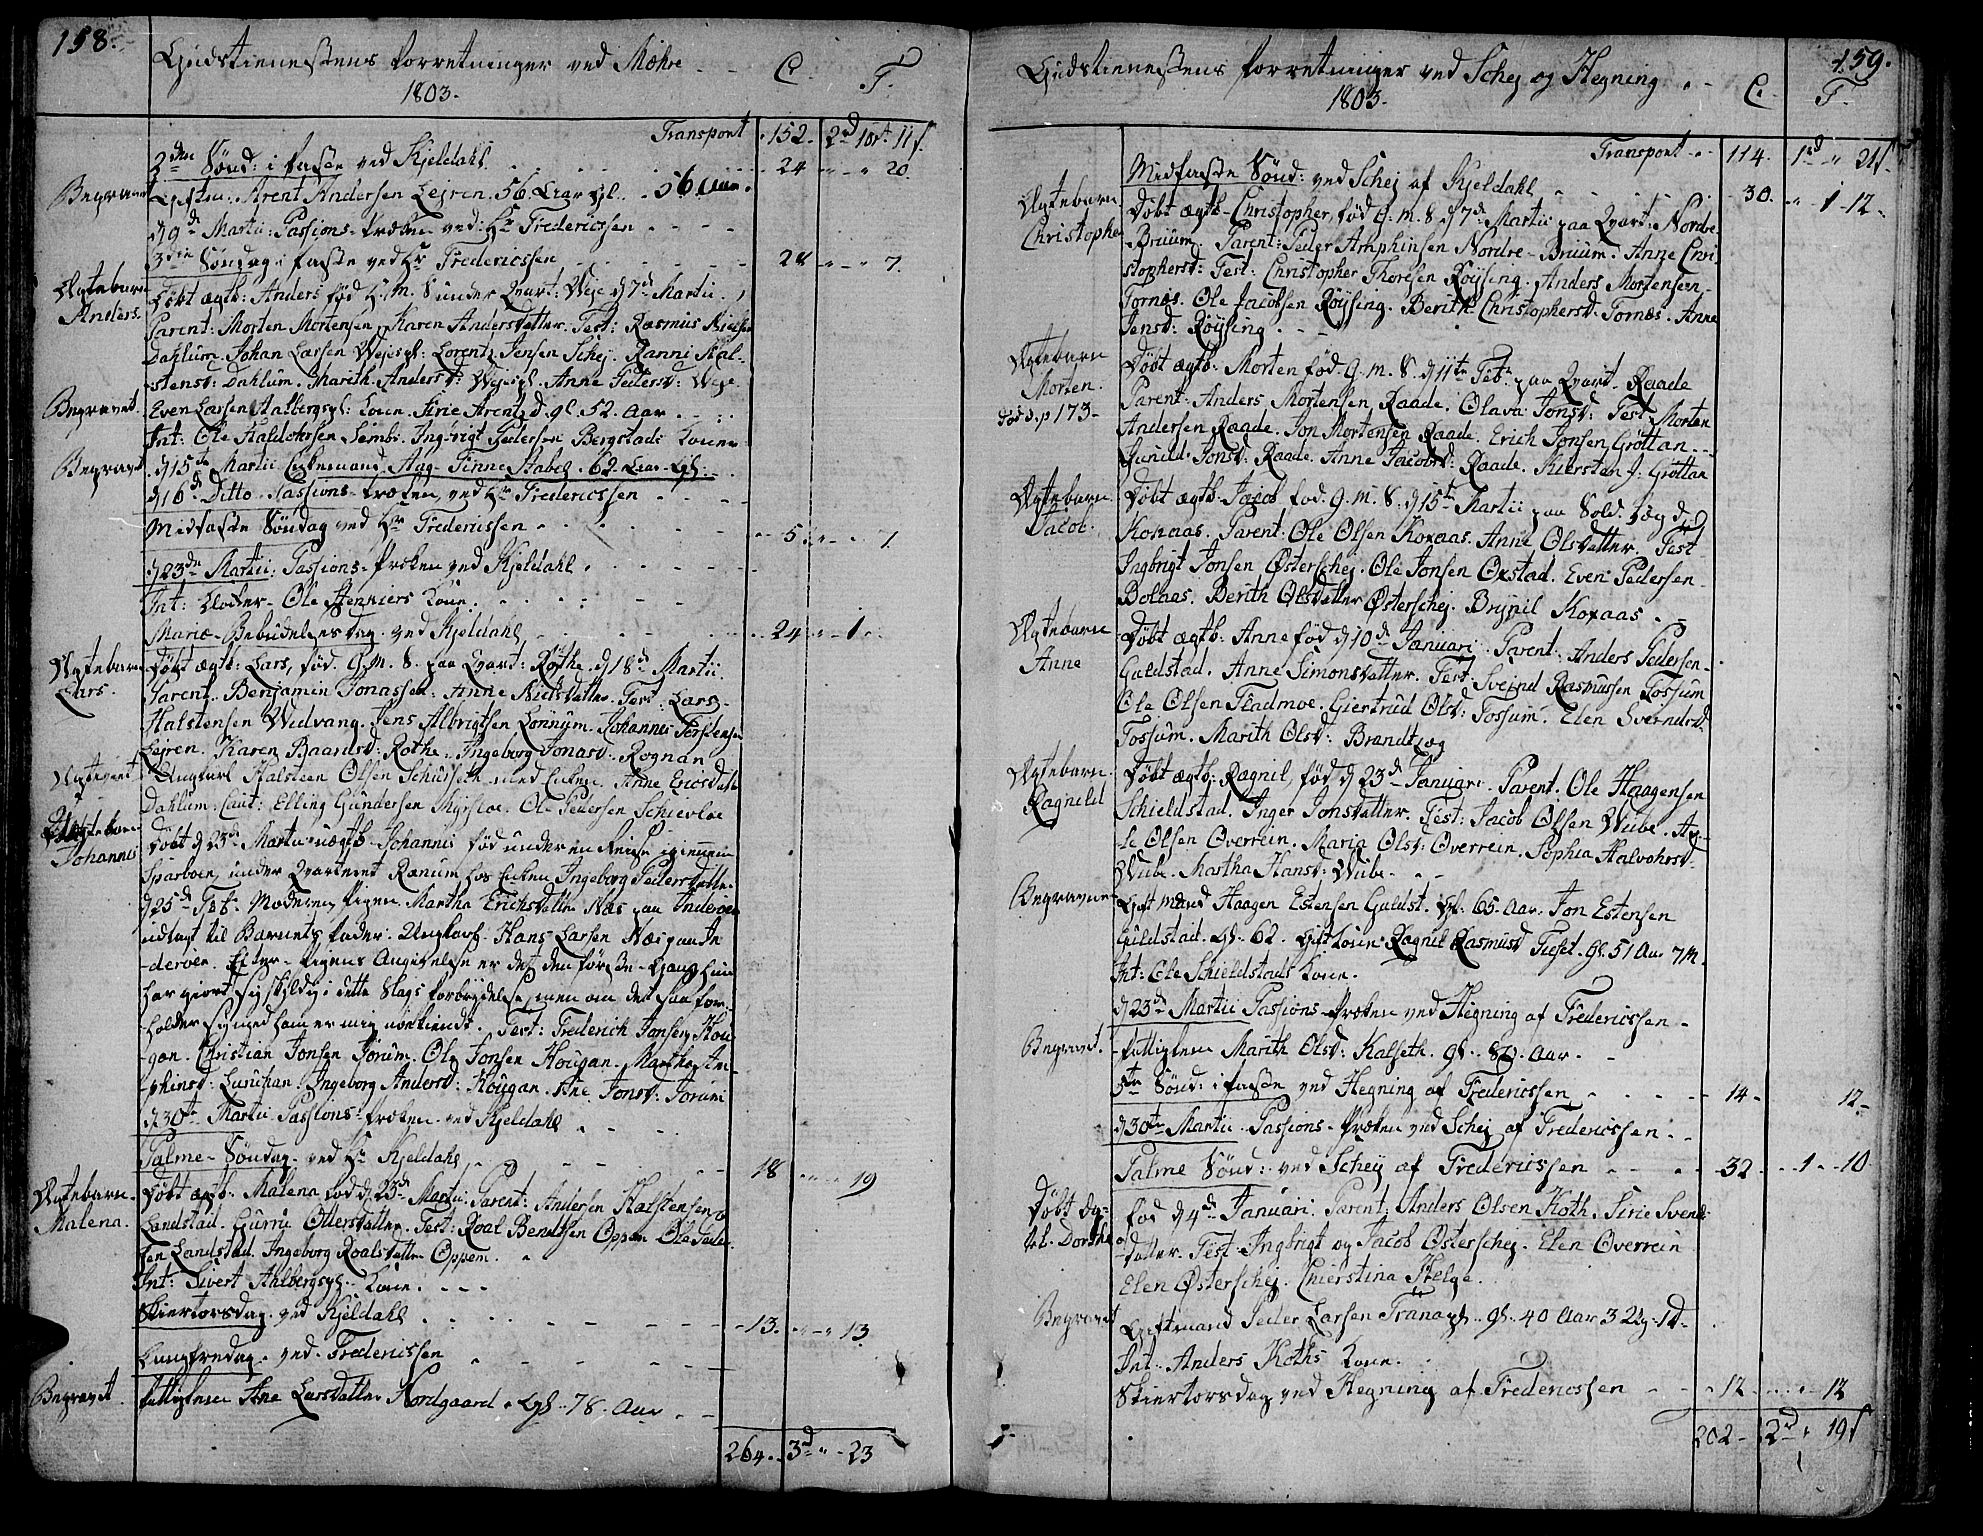 158.
Gudstienestens forretninger ved Mæhre
1803.
C. T.
Transport 152. 2d 1ort 11s.
2den Sønd: i faste ved Kjeldahl 24 " " 20.
Begravet
Arent Andersen Lejren. 56.
d 9de Martii: Passions-Præken ved: Hr Fredericssen
3die Søndag i faste ved Hr Fredericssen 28 " " 7.
Ægtebarn Anders.
Døbt ægtb: Anders fød H. m. S under Qvart: Weje d 7de Martii.
Parent: Morten Mortensen, Karen Andersdatter. Test: Rasmus
Dahlum. Johan Larsen Wejesgl: Lorentz Jensen Schej. Ranni Hal-
stensd: Dahlum. Marith Andersd: Wejesgl. Anne Pedersd: Weje
Begravet.
Even Larsen Aalbergsgl: Kone. Sirie Arentsd. gl. 52. Aar
Int: Ole Haldohrsen Sembs. Ingbrigt Pedersen Bergstads Koner
Begravet
d 15te Martii Enkemand Aag Finne Stabel. 62.
d 16de Ditto. Passions-Præken ved Hr Fredericssen
Medfaste Søndag ved Hr Fredericssen 5 " " 7.
d 23de Martii: Passions-Præken ved Kjeldahl
Int: Klocker Ole Stenners Kone.
Mariæ Bebudelsesdag ved Kjeldahl 24 " 1 "
Ægtebarn Lars.
Døbt ægtb: Lars, fød. G. m. S. paa Qvart: Røthe d 18de Martii
Parent. Benjamin Jonassen. Anne Nielsdatter. Test. Lars
Halstensen Wedvang. Jens Albrigtsen Lønnum. Johannes Torstensen
Lejren. Karen Baardsd: Rothe. Ingeborg Jonasd. Rognan
Ungkarl Halsteen Olsen med Enken Anne Ericsdatter
Dahlum. Caut: Elling Gundersen Myrstoe. Ole Pedersen Schierloe
Johannes
Døbt d 23de Martii uægtb. Johannes fød under en Reise igiennem
Sparboen, under Qvarteret Rænum hos Enken Ingeborg Pedersdatter
d 25de Febr. Moderen Pigen Martha Erichsdatter Næs paa Inderøen
udlagt til Barnets fader: Ungkarl Hans Larsen Næs paa In-
derøen. Efter Pigens Angivelse er det den første Gang hun
har giort sig skyldig i dette Slags forbrydelse, men om det saa for-
holder sig med ham er mig ubekiendt. Test: Frederich Jonsen Hou-
gan. Christian Jonsen Jørum. Ole Jonsen Hougan. Martha Am-
phinsd: Ingeborg Andersd: Hougan. Ane Jonsd: Jorum
d 30te Martii Passions-Præken ved Kjeldahl
Palme-Søndag ved Hr Kjeldahl 18 " " 19
Ægtebarn Malena.
Døbt ægtb. Malena fød d 23de Martii: Parent: Anders Halstensen
Landstad. Gurru Ottersdatter. Test: Roal Bendtsen Oppem Ole Peder-
sen Landstad. Ingeborg Roalsdatter Oppem.
Int: Sivert Ahlbergsgl. Kone.
Skiertorsdag ved Kjeldahl 13. " " 13
Langfredag ved Fredericssen
Begravet
Fattiglem Ane Larsdatter Nordgaard. gl. 78. Aar
264. 3d " 23
159.
Gudstienestens forretninger ved Schej og Hegning
1803.
C. T.
Transport 114. 1d " 21s
Medfaste Sønd: ved Schej af Kjeldahl 30. " 1 12
Ægtebarn Christopher
Døbt ægtb. Christopher, fød G. m. S d 7de Martii paa Qvart: Nordre
Bruum. Parent: Peder Arnphinsen Nordre Bruum. Anne Chri-
stophersd: Test: Christopher Thoresen Røysing. Anders Mortensen
Tornæs. Ole Jacobsen Røysing. Berith Christophersd. Tornæs. Anne
Jensd: Røysing.
Ægtebarn Morten. død S. p 173
Døbt ægtb. Morten fød G. m. S. d 11te Febr paa Qvart. Raade
Parent. Anders Mortensen Raade. Olava Jonsd: Test Morten
Andersen Raade. Jon Mortensen Raade. Erich Jonsen Grøttan
Gunild Jonsd: Raade. Anne Jacobsd: Raade. Kierstan J. Grøttan
Ægtebarn Jacob.
Døbt ægtb. Jacob fød. G. m. S. d 15te Martii paa Sold.
Koxaas. Parent: Ole Olsen Koxaas. Anne Olsdatter. Test
Ingbrigt Jonsen Østerschej. Ole Jonsen Oxstad. Even Pedersen
Bolaas. Berith Olsdatter Østerschej. Brynil Koxaas.
Ægtebarn Anne
Døbt ægtb. Anne fød d 10de Januari. Parent: Anders Pedersen
Guldstad. Anne Simonsdatter. Test. Svejnd Rasmussen Fossum
Ole Olsen Stadmoe. Giertrud Olsd: Fossum. Elen Sverndsd.
Fossum. Marith Olsd: Brandtzæg
Ægtebarn. Ragnild
Døbt ægtb: Ragnil, fød d 23de Januari. Parent. Ole Haagensen
Schieldstad. Inger Jonsdatter. Test: Jacob Olsen Wibe.
Olsen Overrein. Maria Olsd: Overrein. Sophia Halvohrsd.
Wibe. Martha Hansd: Wibe.
Begravne
Gift Mand Haagen Estensen Guldst. gl: 65. Aar. Jon Estensen
Guldstad. gl. 62. Gift Kone Ragnil Rasmusd Tuset. gl. 51 Aar 7 M.
Int: Ole Schieldstads Kone.
d 23de Martii Passions-Præken ved Hegning af Fredericssen
Begravet.
Fattiglem Marith Olsd: Kalseth. gl. 80. Aar.
5te Sønd: i faste ved Hegning af Fredericssen 14 12
d 30te Martii Passions-Præken ved Schej af Fredericssen
Palme Sønd: ved Schej af Fredericssen 32 1 10
Døbt Dorthe
fød d 4de Januari. Parent: Anders Olsen Hoth. Sirie Svends-
datter. Test. Ingbrigt og Jacob Østerschej. Elen Overrein
Elen Østerschej. Chierstina Helge.
Begravet
Giftmand Peder Larsen Trana gl. 40 Aar 3 Ug. 1d.
Int. Anders Hoths Kone.
Skiertorsdag ved Hegning af Fredericssen 12 " 12
202 2d " 19s